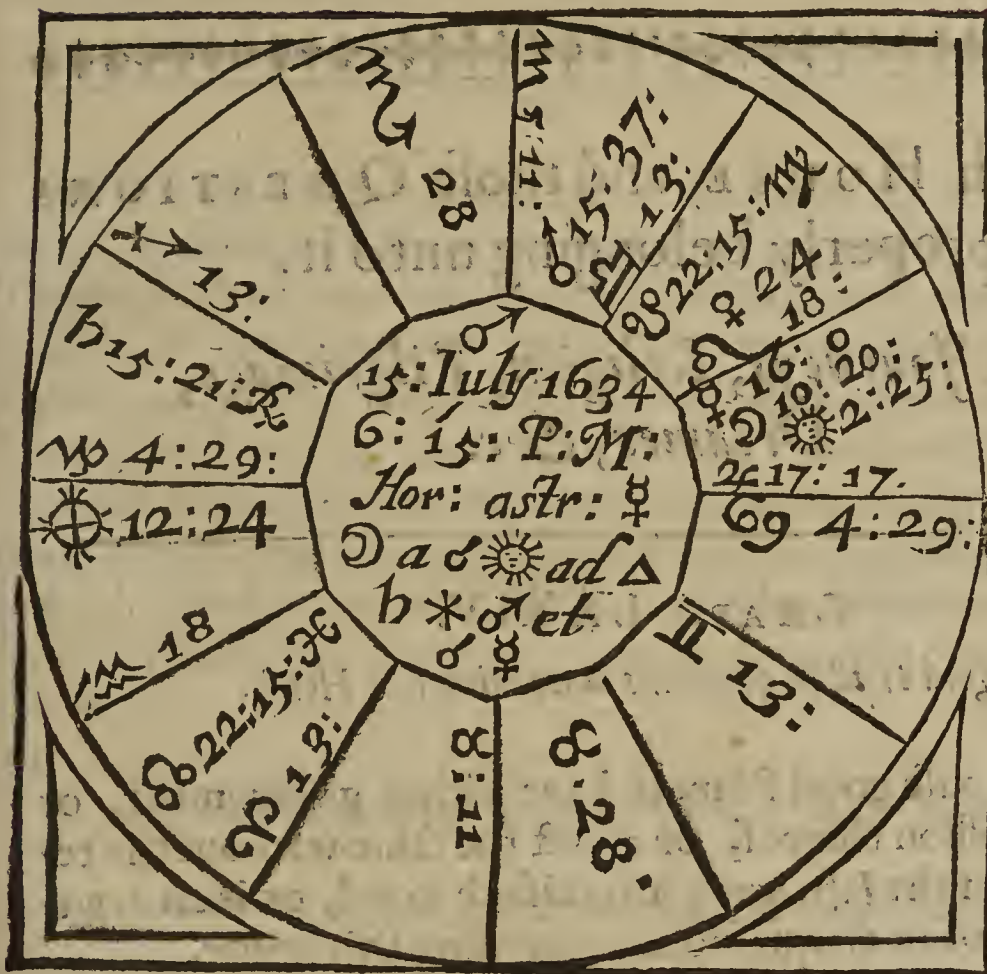 ♏ 28
♏ 5:11:
♂ 15: 37:
♎ 13:
☋ 22:15: ♍
♀ 24
♌ 18:
☿ 16: 0
☽ 10: 20:
☉ 2: 25:
♃ 17: 17.
♋ 4: 29:
♊ 13:
♉. 28.
♉: 11
♈ 13:
☊ 22:15: ♓
♒ 18
⊗ 12:24
♑ 4:29:
♄ 15:21: ♐
♐ 13:
♂
15: Iuly 1634
6: 15: P: M:
Hor: astr: ☿
☽ a ☌ ☉ ad △
♄ ⚹ ♂ et
☌ ☿